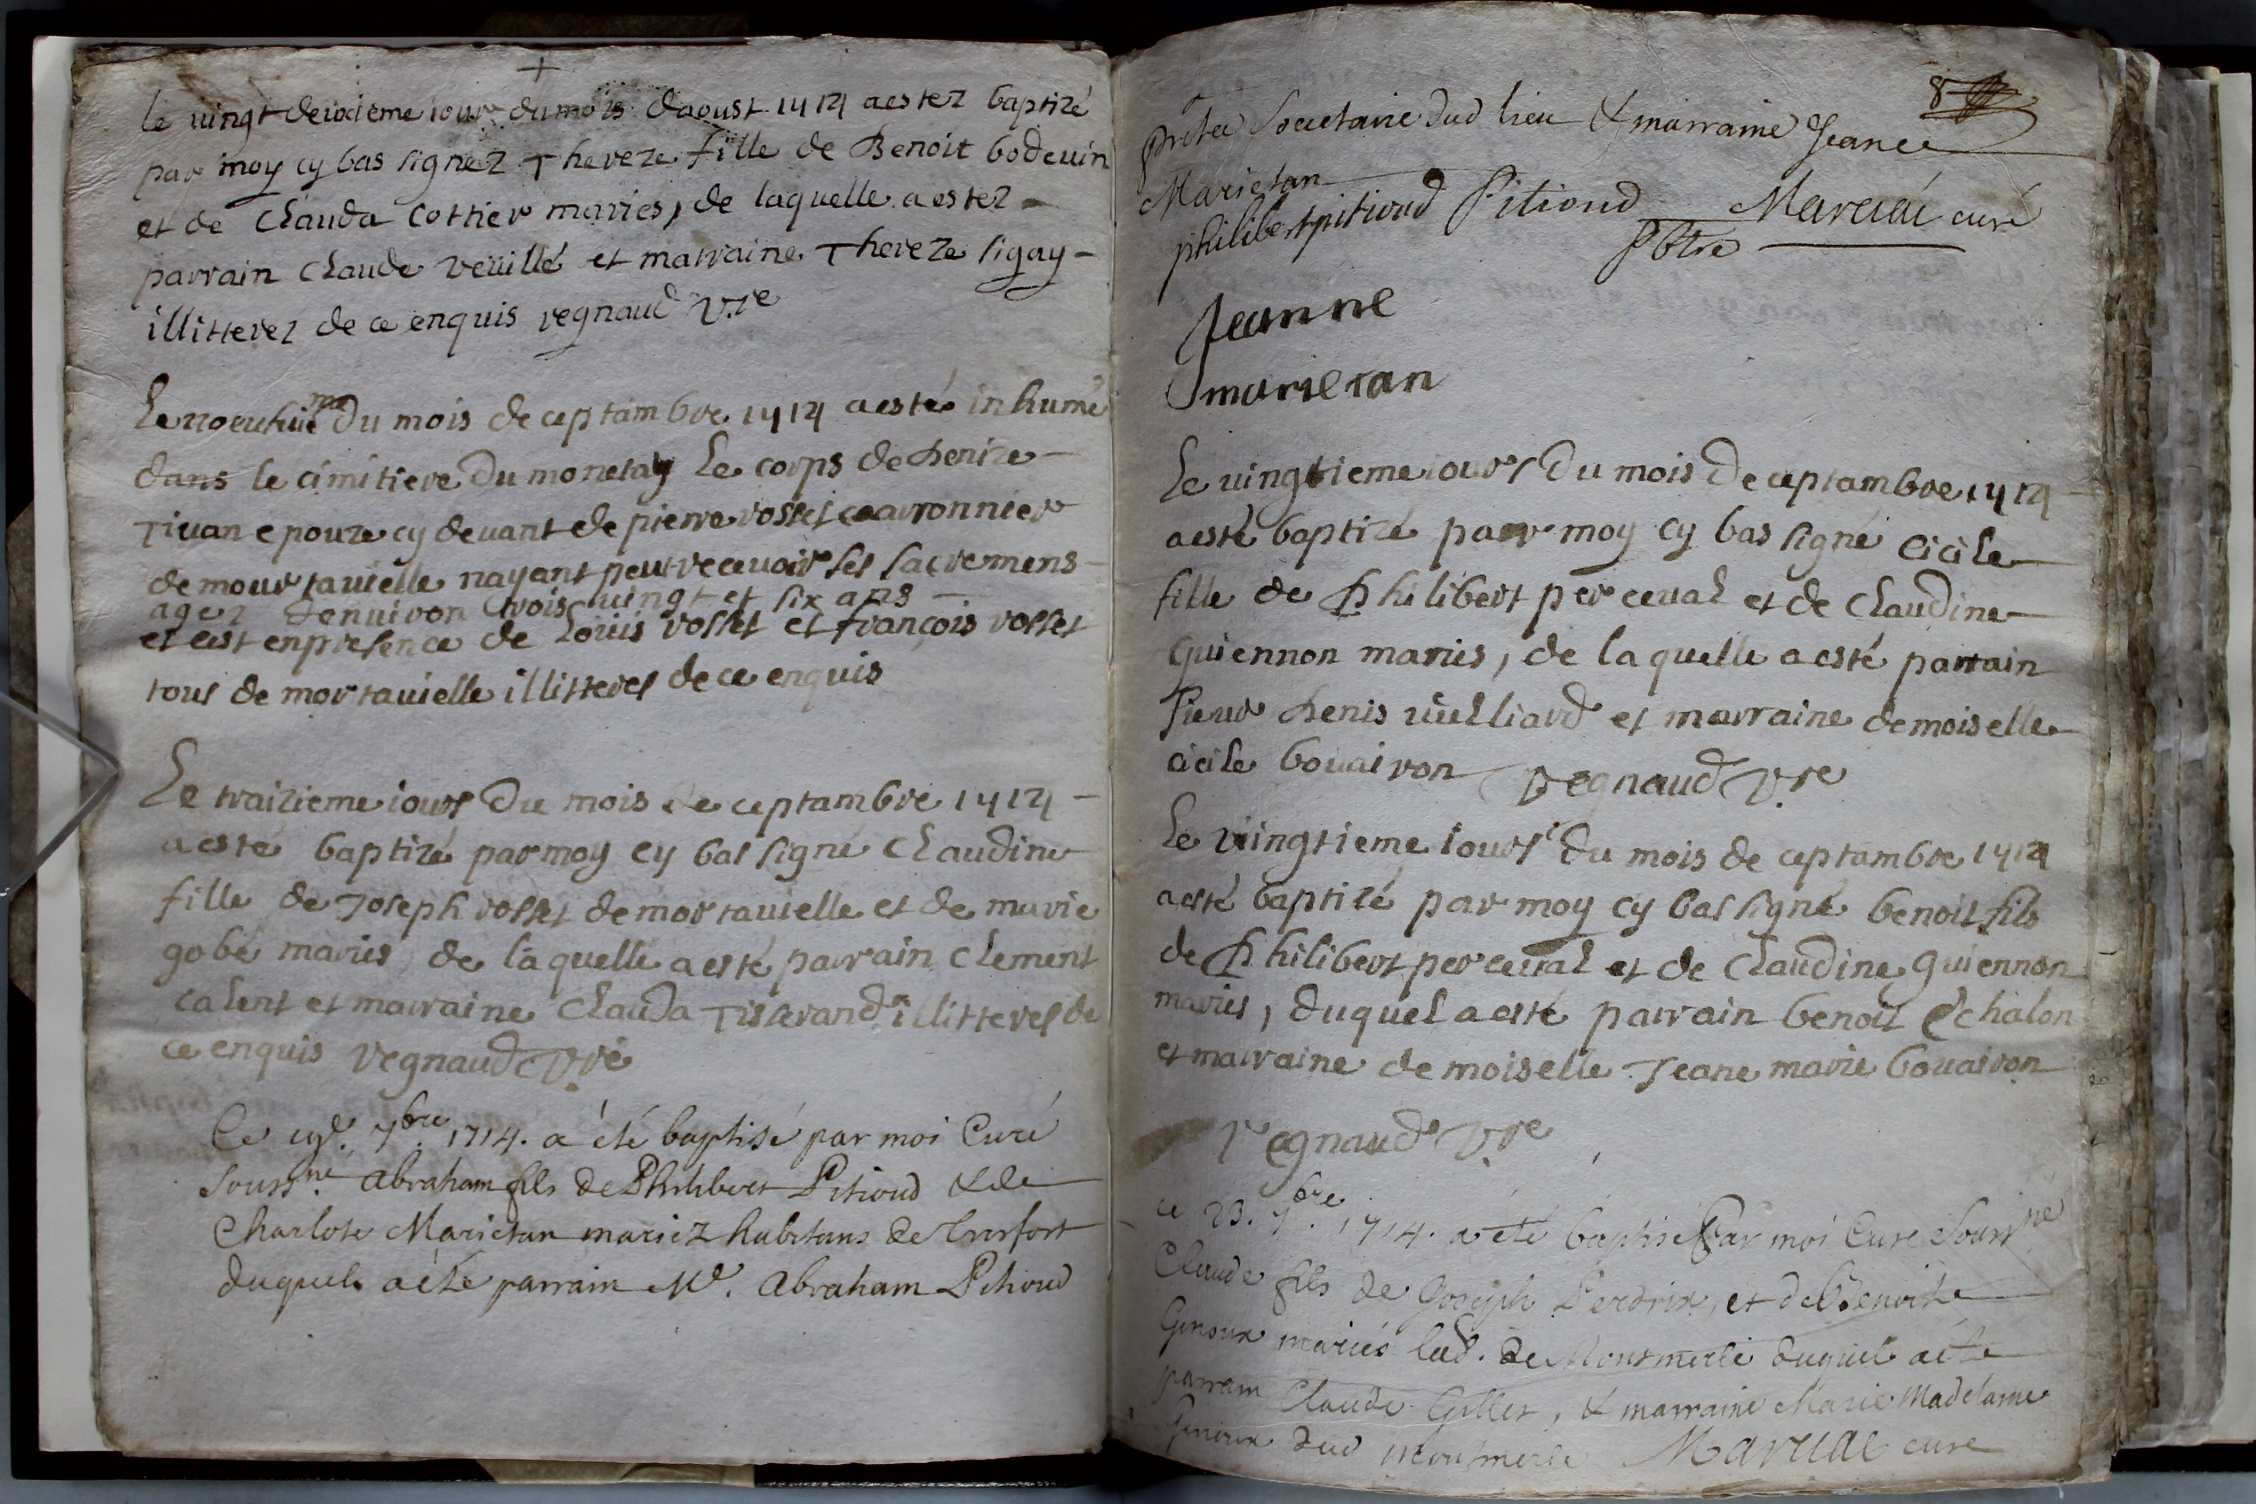 le vingt deuxieme jour du mois daoust 1714 a estez baptizé
par moy cy bas signez Thereze fille de Benoit bodevin
et de Clauda Cottier mariés, de laquelle a estez
parrain Claude veuillé et marraine Thereze sigay
illitterez de ce enquis regnaud V.re
Le du mois de ceptambre 1714 a esté inhumé
dans le cimitiere du monetay Le corps de denize
Tivan epouze cy devant de pierre rosset charronnier
de mourtavielle nayant peut recevoir ses sacremens
agez denviron trois vingt et six ans
et cest en presence de Louis rosset et françois rosset
tous de mortavielle illitteres de ce enquis
Le traizieme jour du mois de ceptambre 1714
a esté baptizé par moy cy bas signé Claudine
fille de Joseph rosset de mortavielle et de marie
gobé mariés de laquelle a esté parrain Clement
calent et marraine Clauda Tisserand illitteres de
ce enquis regnaud V.re
Ce 7bre 1714. a été baptisé par moi Curé
Souss.né Abraham fils de Philibert Pitioud & de
Charlote Marietan mariez habitans de
duquel a été parrain Mr. Abraham Pitioud
8
prêtre Societaire dud lieu & marraine Jeanne
Marietan
philibert pitioud Pitioud Maruai curé
Pbtre
Jeanne
marietan
Le vingtieme jour du mois de ceptambre 1714
a esté baptizé par moy cy bas signé Cicile
fille de Philibert perceval et de Claudine
Guiennon mariés, de laquelle a esté parrain
sieur denis vuilliard et marraine demoiselle
cicile bouairon regnaud V.re
Le vingtieme jour du mois de ceptambre 1714
a esté baptizé par moy cy bas signé benoit fils
de Philibert perceval et de Claudine guiennon
mariés, duquel a esté parrain benoit Echalon
et marraine demoiselle Jeane marie bouairon
regnaud V.re
ce 23. 7bre 1714. a été baptisé Par moi Curé Souss.né
Claude fils de Joseph Perdrix, et de Benoite
Genoux mariés lad. de Montmerle duquel a été
parrain Claude Gillet, & marraine Marie Madelaine
Genoux dud Montmerle Maruai curé